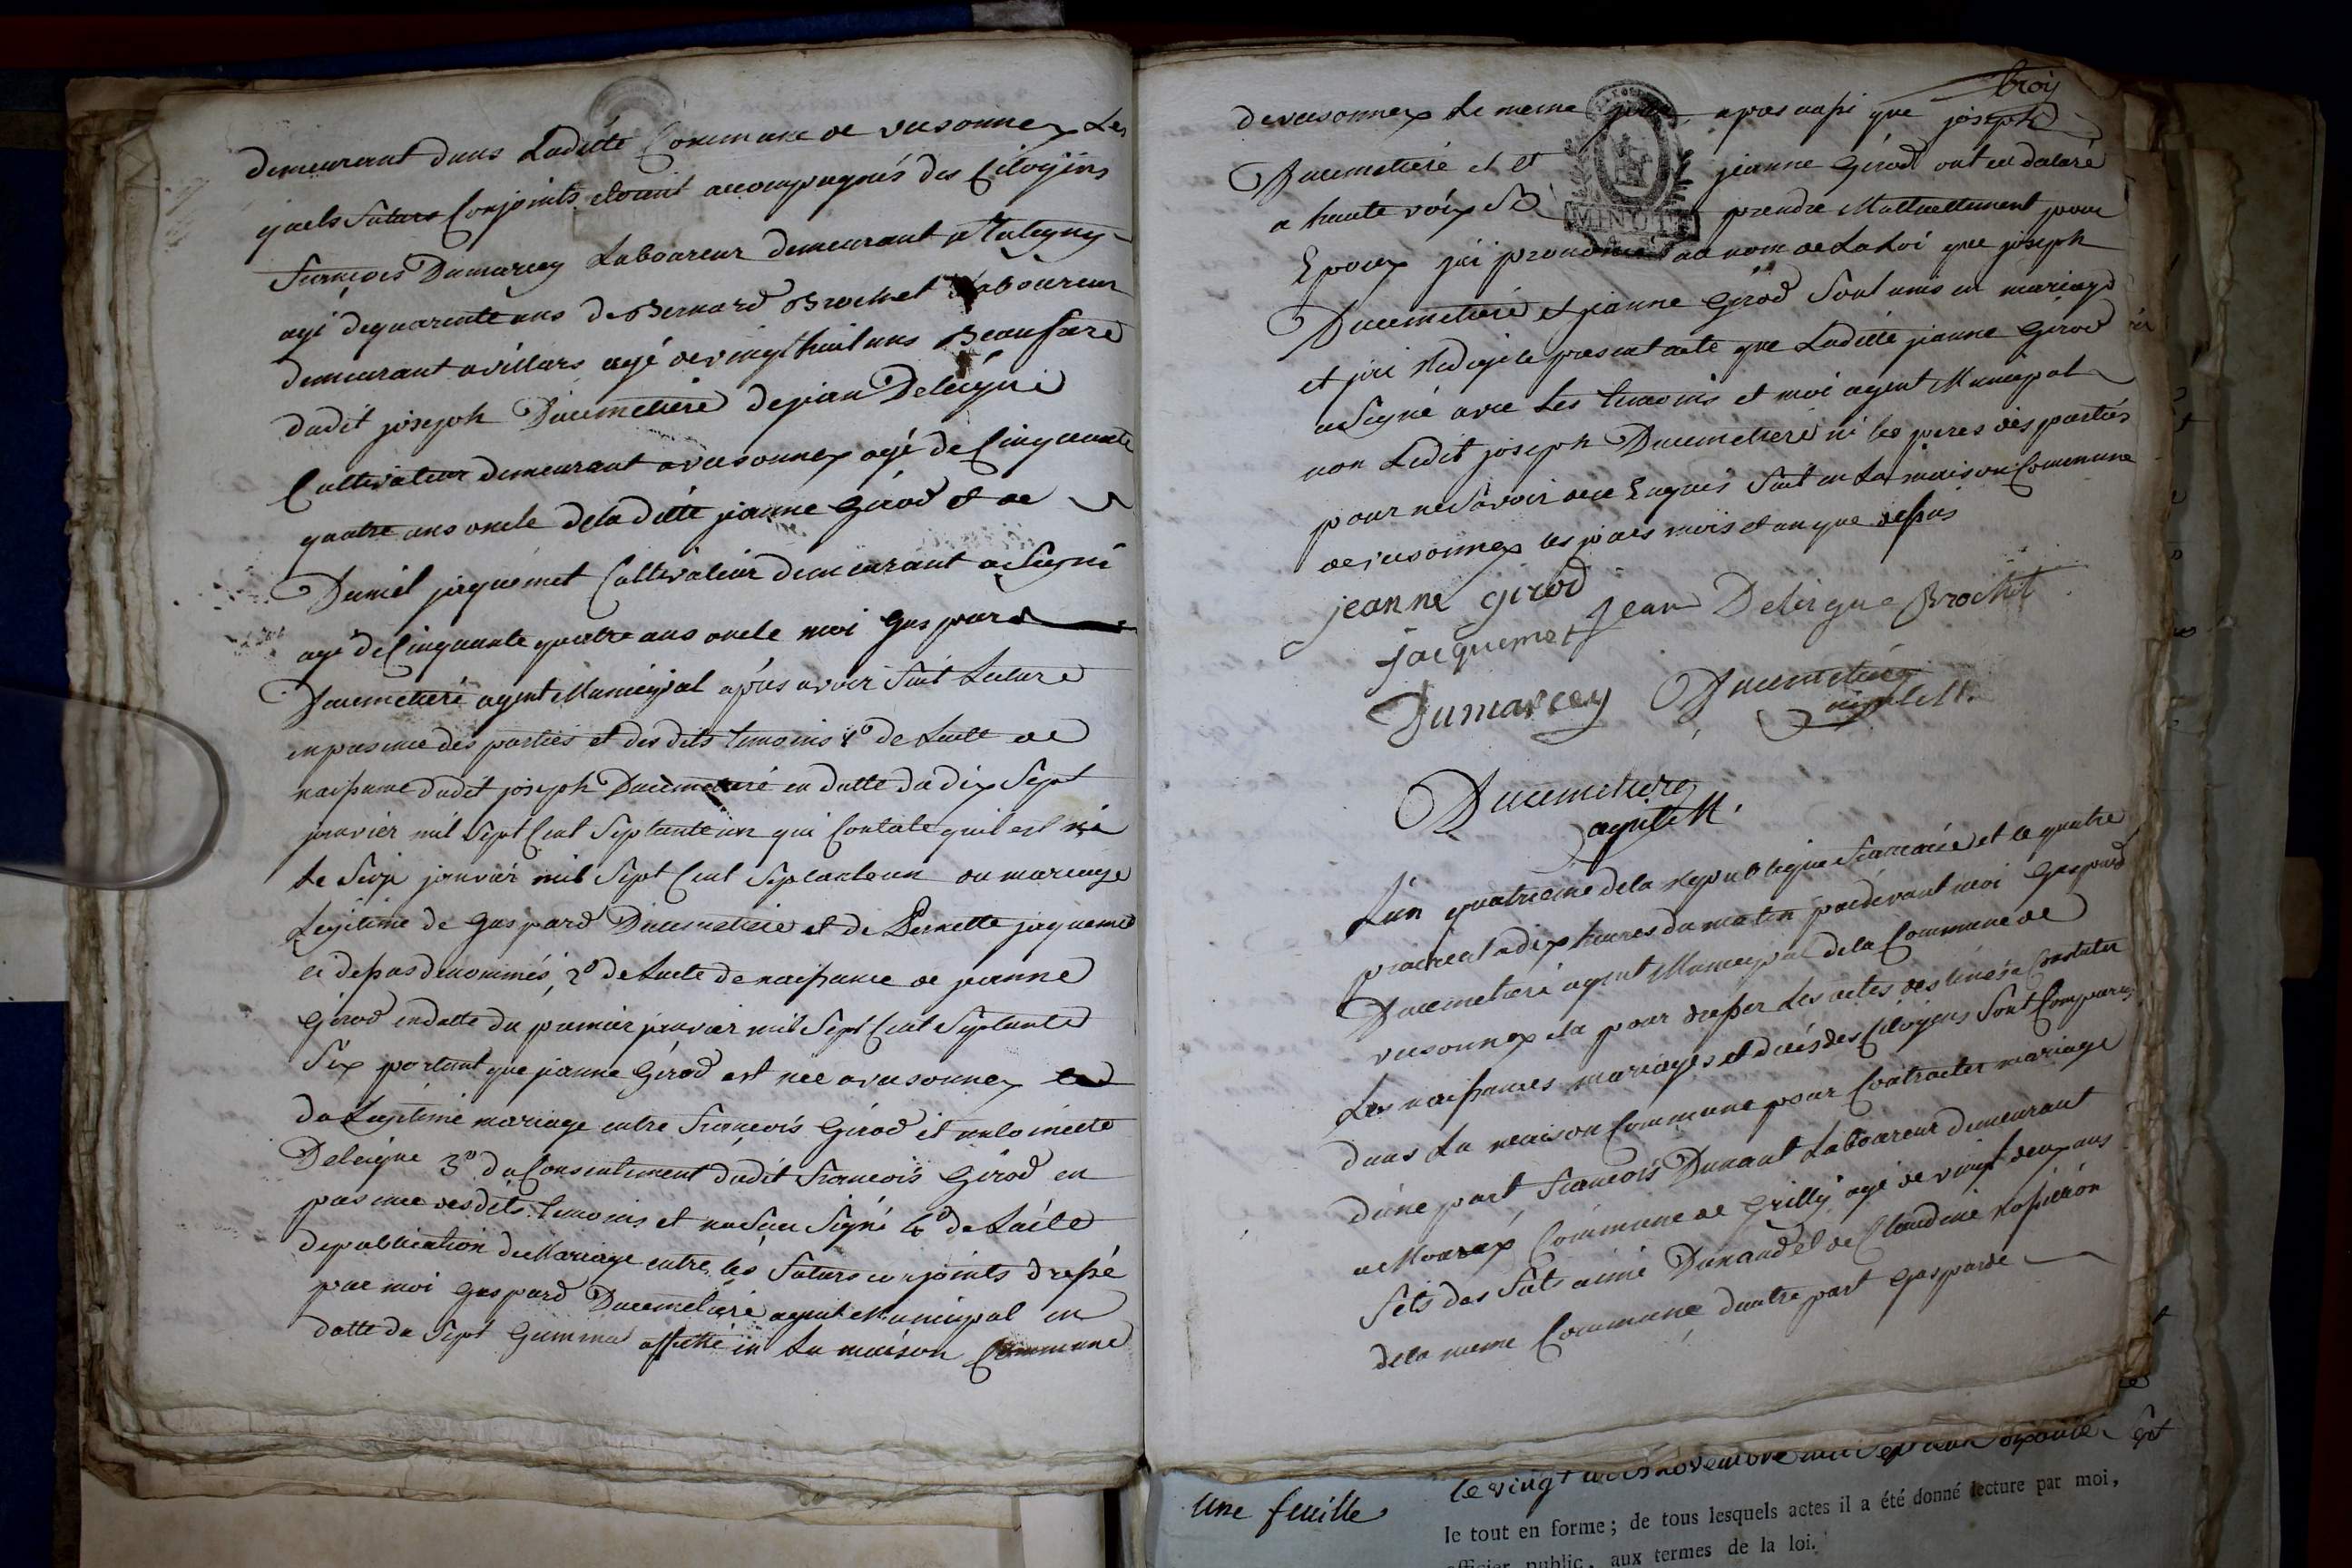 demeurant dans Ladite Commune de vesonnex Les
quels futurs Conjoints etoint accompagnés des Citoyins
francois Dumarcey Laboureur demeurant a
agé dequarente ans de Bernard Brochet Laboureur
demeurant a villars agé de vingt huit ans Beaufrere
dudit joseph Ducimetiere de jean Deleigue
Cultivateur demeurant a vesonnex agé de Cinquante
quatre ans oncle dela ditte jeanne Girod et de
Daniel jaquemet Cultivateur demeurant a
agé de Cinquante quatre ans oncle moi Gaspard
Ducimetiere agent Municipal après avoir fait Lecture
en presence des parties et des dits temoins 1º de Lacte de
naissance dudit joseph Ducimetiere en datte du dix Sept
janvier mil Sept Cent Septante un qui Contate quil est né
Le Seize janvier mil Sept Cent Septante un du mariage
Legitime de Gaspard Ducimetiere et de Pernette jaquemet
ci dessus denommés, 2º de Lacte de naissance de jeanne
Girod en datte du premier janvier mil Sept Cent Septante
Six portant que jeanne Girod est née a vesonnex
du Legitime mariage entre francois Girod et
Deleigue 3º du Consentement dudit francois Girod en
presence des dits temoins et Signé 4º de Lacte
de publication de Mariage entre les futurs conjoints dressé
par moi Gaspard Ducimetiere agent Municipal en
datte du Sept affiché en La maison Commune
troix
de vesonnex Le meme jour, apres aussi que joseph
Ducimetiere et jeanne Girod ont eu declaré
a haute voix Se prendre Mutuellement pour
Epoux jai prononcé au nom de La Loi que joseph
Ducimetiere et jeanne Girod Sont unis en mariage
et jai redigé le present acte que Laditte jeanne Girod
a Signé avec Les temoins et moi agent Municipal
non Ledit joseph Ducimetiere ni les peres des parties
pour ne Savoir de ce Enquis fait en La maison Commune
de vesonnex les jours mois et an que dessus
jeanne girod
jean Deleigue Brochet
jacquemet
Dumarcey Ducimetiere
Ducimetiere
agent M.
MINUTE
L'an quatrieme dela republique francaise et le quatre
prairéal a dix heures du matin pardevant moi Gaspard
Ducimetiere agent Municipal dela Commune de
vesonnex pour dresser Les actes destinés a Constater
Les naissances mariages et decés des Citoyens Sont Comparus
dans La maison Commune pour Contracter mariage
d'une part francois Dunant Laboureur demeurant
a Mourex Commune de Grilly agé de vingt deux ans
fils des aimé Dunand et de Claudine
dela meme Commune d'autre part Gasparde
Une feuille
le vingt novembre mil Sept cent Soixante Sept
le tout en forme; de tous lesquels actes il a été donné lecture par moi,
officier public, aux termes de la loi.